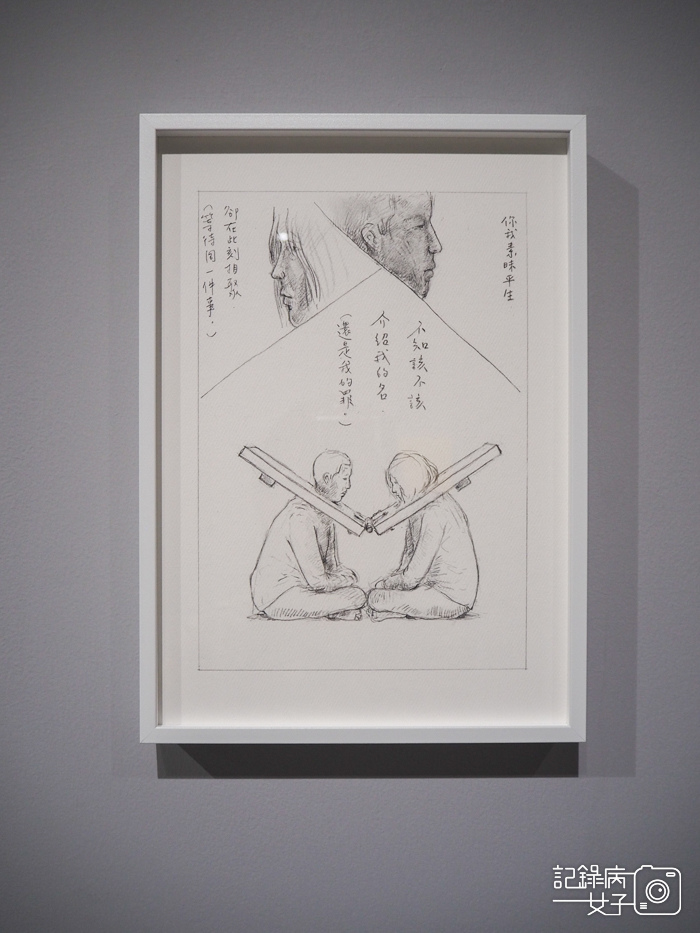 你我素昧平生
卻在此刻相聚.
(等待同一件事。)
不知該不該
介紹我的名.
(還是我的罪。)
記錄病
女子